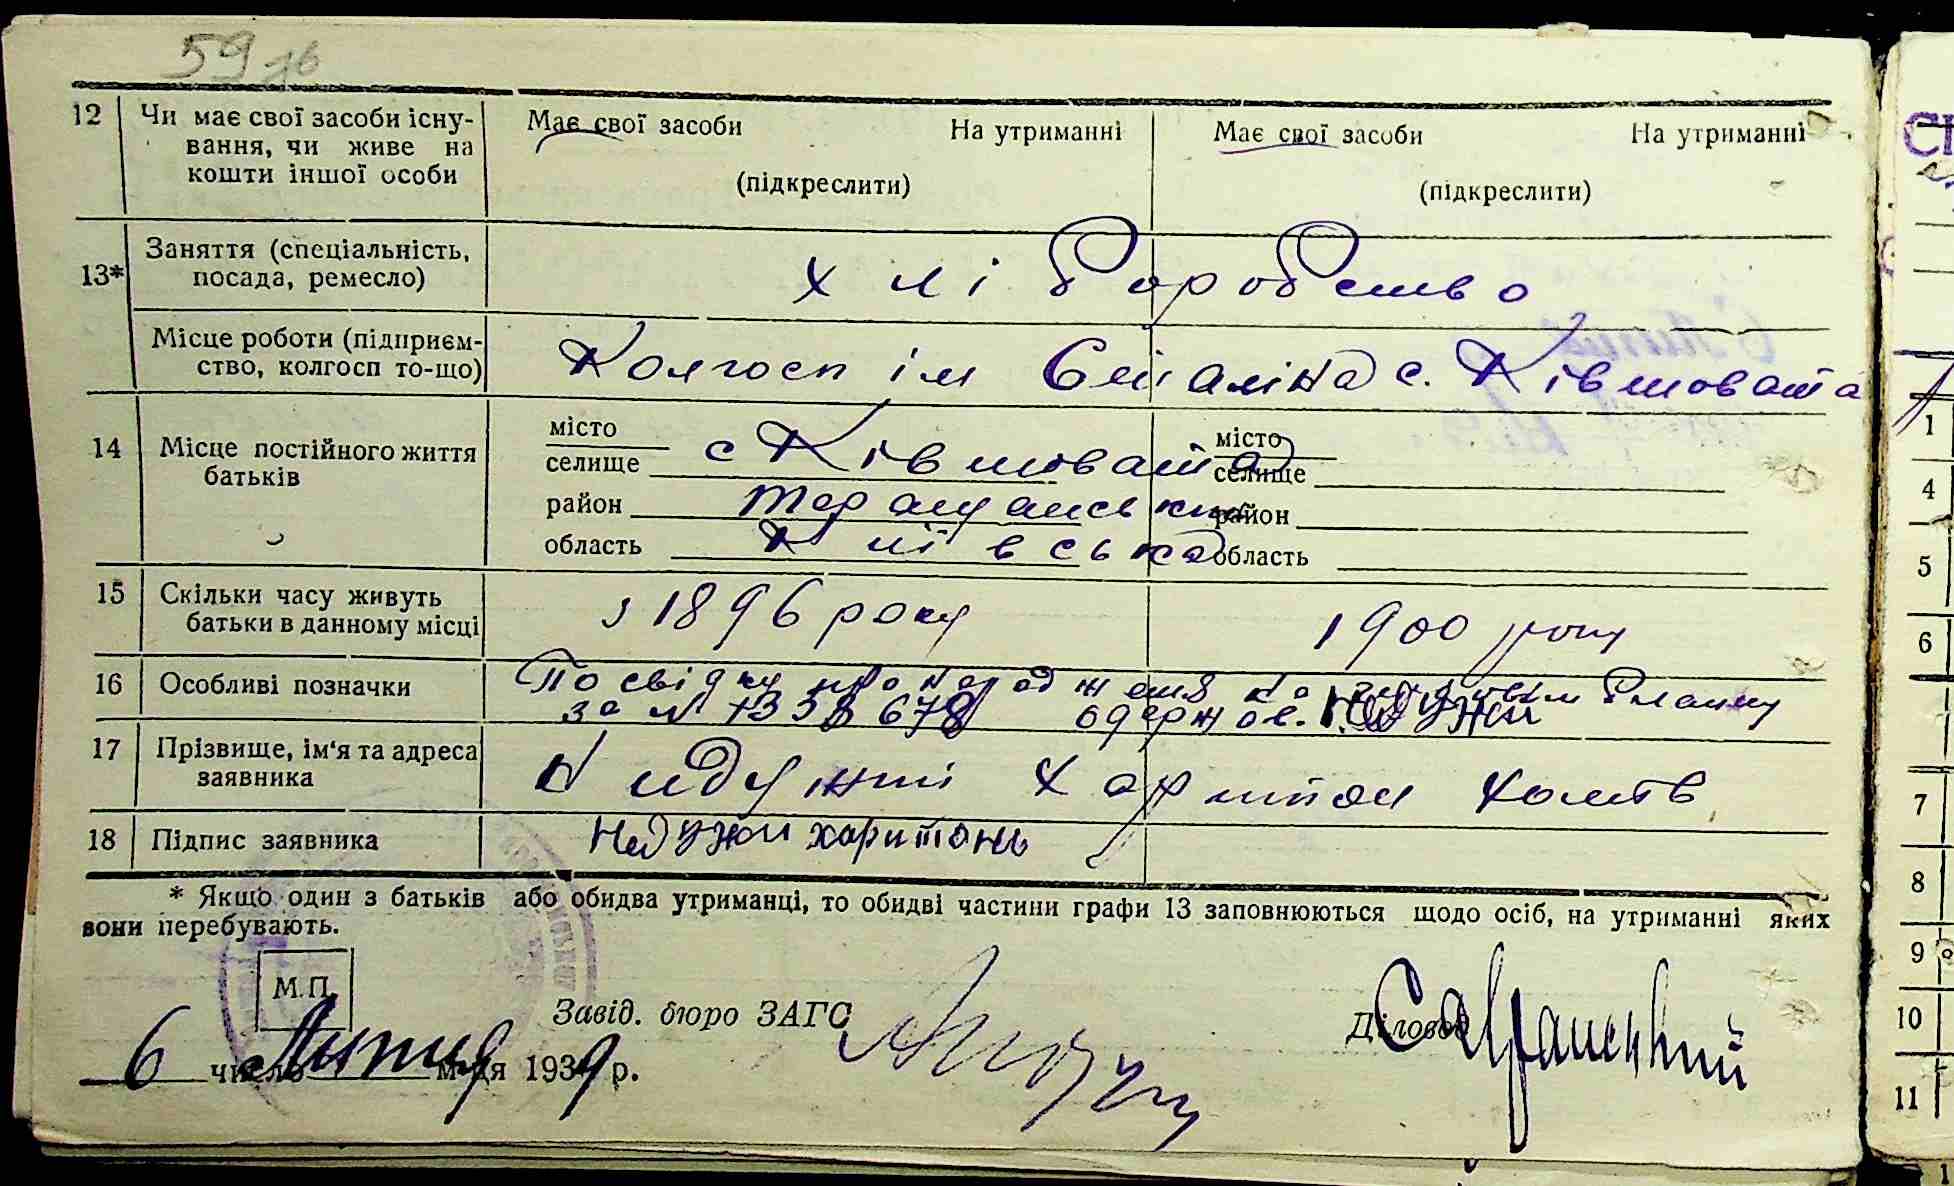 59 зв
12 Чи має свої засоби існу- Має свої засоби На утриманні Має свої засоби На утриманні
вання, чи живе на
кошти іншої особи (підкреслити) (підкреслити)
13* Заняття (спеціальність,
посада, ремесло) хліборобство
Місце роботи (підприєм-
ство, колгосп то-що) Колгосп ім Сталіна с. Ківшовата
14 Місце постійного життя
батьків
місто
селище с Ківшовата
район Таращанський
область Київська
місто
селище
район
область
15 Скільки часу живуть
батьки в данному місці з 1896 року 1900 року
16 Особливі позначки Посвідку про народження по
за № 733867 одержав. Недужи
17 Прізвище, ім'я та адреса
заявника Недужий Харитон
18 Підпис заявника Недужи харитонь
* Якщо один з батьків або обидва утриманці, то обидві частини графи 13 заповнюються щодо осіб, на утриманні яких
вони перебувають.
М.П.
Завід. бюро ЗАГС
Діловод
6 число Липня м-ця 1939 р.
1
4
5
6
7
8
9
10
11